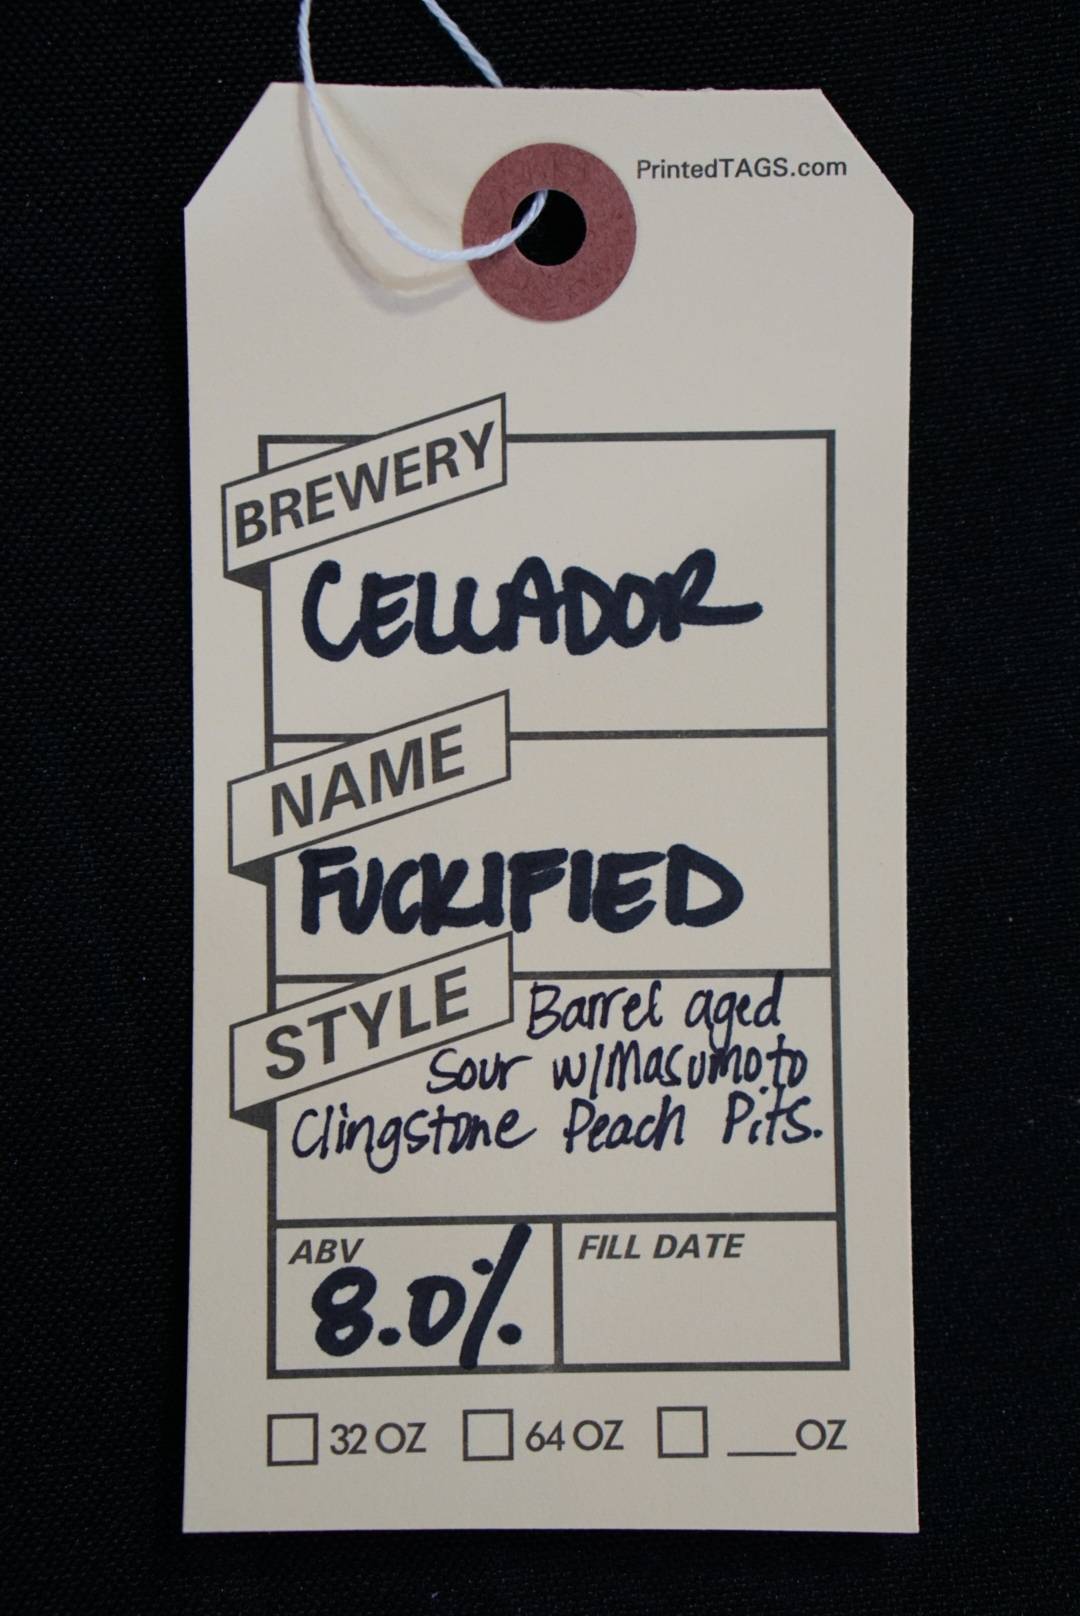 PrintedTAGS.com
BREWERY
CELLADOR
NAME
FUCKIFIED
STYLE
Barrel aged
Sour w/Masumoto
Clingstone Peach Pits.
ABV
8.0%
FILL DATE
32 OZ
64 OZ
___OZ